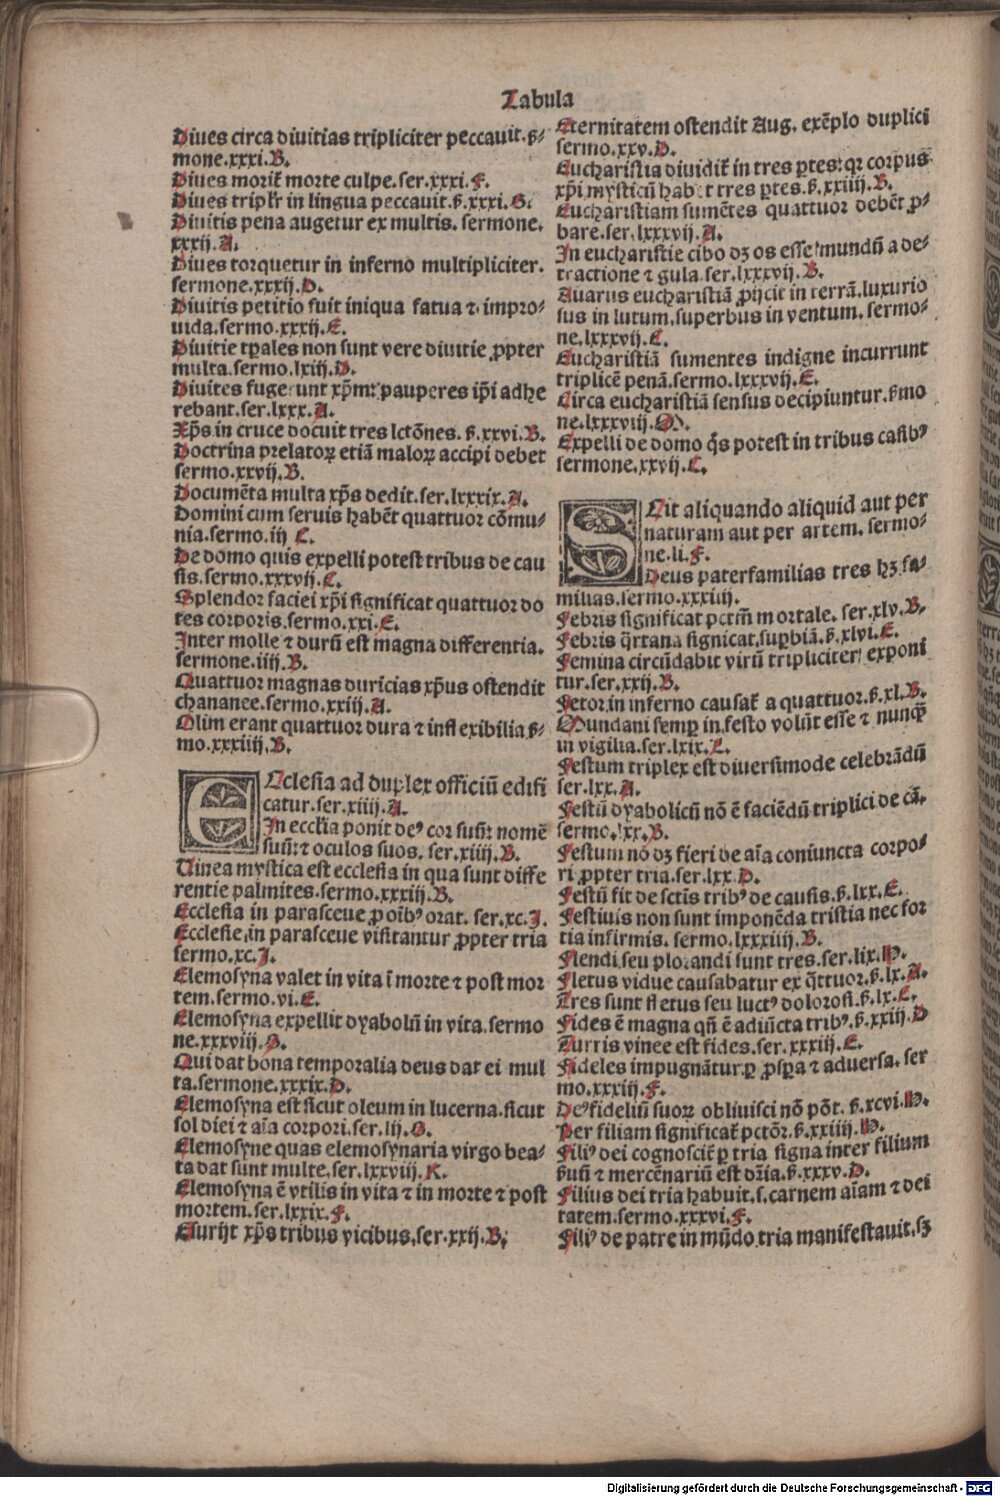 Tabula
Diues circa diuitias tripliciter peccauit.ẜ⸗
mone.xxxi.B.
Diues morit᷑ morte culpe.ser.xxxi.F.
Diues triplr̄ in lingua peccauit.ẜ.xxxi.G.
Diuitis pena augetur ex multis. sermone.
xxxij.A.
Diues torquetur in inferno multipliciter.
sermone.xxxij.D.
Diuitis petitio fuit iniqua fatua ⁊ impro⸗
uida.sermo.xxxij.E.
Diuitie tp̄ales non sunt vere diuitie ꝓpter
multa.sermo.lxiij.D.
Diuites fugerunt xp̄m: pauperes ip̄i adhe
rebant.ser.lxxx.A.
Xp̄s in cruce docuit tres lctōnes. ẜ.xxvi.B.
Doctrina prelatoꝝ etiā maloꝝ accipi debet
sermo.xxvij.B.
Documēta multa xp̄s dedit.ser.lxxxix.A.
Domini cum seruis habēt quattuor cōmu⸗
nia.sermo.iij C.
De domo quis expelli potest tribus de cau
sis.sermo.xxxvij.C.
Splendor faciei xp̄i significat quattuor do
tes corporis.sermo.xxi.E.
Inter molle ⁊ durū est magna differentia.
sermone.iiij.B.
Quattuor magnas duricias xp̄us ostendit
chananee.sermo.xxiij.A.
Olim erant quattuor dura ⁊ inflexibilia.ẜ⸗
mo.xxxiiij.B.
Ecclesia ad duplex officiū edifi
catur.ser.xiiij.A.
In eccl̄ia ponit deꝰ cor suū: nomē
suū: ⁊ oculos suos. ser.xiiij.B.
Vinea mystica est ecclesia in qua sunt diffe
rentie palmites.sermo.xxxiij.B.
Ecclesia in parasceue ꝓ oīb᷒ orat. ser.xc.I.
Ecclesie in parasceue visitantur ꝓpter tria
sermo.xc.I.
Elemosyna valet in vita ī morte ⁊ post mor
tem.sermo.vi.E.
Elemosyna expellit dyabolū in vita.sermo
ne.xxxviij.O.
Qui dat bona temporalia deus dat ei mul
ta.sermone.xxxix.D.
Elemosyna est sicut oleum in lucerna.sicut
sol diei ⁊ aīa corpori.ser.lij.O.
Elemosyne quas elemosynaria virgo bea⸗
ta dat sunt multe.ser.lxxviij.K.
Elemosyna ē vtilis in vita ⁊ in morte ⁊ post
mortem.ser.lxxix.F.
Esurijt xp̄s tribus vicibus.ser.xxij.B.
Eternitatem ostendit Aug. exēplo duplici
sermo.xxv.D.
Eucharistia diuidit᷑ in tres ꝑtes: qꝛ corpus
xp̄i mysticū habet tres ꝑtes.ẜ.xxiiij.B.
Eucharistiam sumētes quattuor debēt ꝓ⸗
bare.ser.lxxxvij.A.
In eucharistie cibo dꝫ os esse mundū a de⸗
tractione ⁊ gula.ser.lxxxvij.B.
Auarus eucharistiā ꝓijcit in terrā.luxurio
sus in lutum.superbus in ventum. sermo⸗
ne.lxxxvij.C.
Eucharistiā sumentes indigne incurrunt
triplicē penā.sermo.lxxxvij.E.
Circa eucharistiā sensus decipiuntur.ẜmo
ne.lxxxviij.M.
Expelli de domo q̄s potest in tribus casib᷒
sermone.xxvij.C.
Fit aliquando aliquid aut per
naturam aut per artem. sermo⸗
ne.li.F.
Deus paterfamilias tres hꝫ fa⸗
milias.sermo.xxxiiij.
Febris significat pctm̄ mortale. ser.xlv.B.
Febris q̄rtana signicat.suꝑbiā.ẜ.xlvi.E.
Femina circūdabit virū tripliciter exponi
tur.ser.xxij.B.
Fetor in inferno causat᷑ a quattuor.ẜ.xl.B.
Mundani semꝑ in festo volūt esse ⁊ nunq̄ꝫ
in vigilia.ser.lxix.L.
Festum triplex est diuersimode celebrādū
ser.lxx.A.
Festū dyabolicū nō ē faciēdū triplici de cā.
sermo.lxx.B.
Festum nō dꝫ fieri de aīa coniuncta corpo⸗
ri ꝓpter tria.ser.lxx.D.
Festū fit de sctīs trib᷒ de causis.ẜ.lxx.E.
Festiuis non sunt imponēda tristia nec for
tia infirmis. sermo.lxxxiiij.B.
Flendi seu plorandi sunt tres.ser.lix.H.
Fletus vidue causabatur ex q̄ttuor.ẜ.lx.A.
Tres sunt fletus seu luctꝰ dolorosi.ẜ.lx.C.
Fides ē magna qn̄ ē adiūcta trib᷒.ẜ.xxiij.D
Turris vinee est fides.ser.xxxiij.E.
Fideles impugnātur ꝑ ꝓsꝑa ⁊ aduersa. ser
mo.xxxiij.F.
Deꝰ fideliū suoꝝ obliuisci nō pōt. ẜ.xcvi.H.
Per filiam significat᷑ pctōꝛ.ẜ.xxiiij.H.
Filiꝰ dei cognoscit᷑ ꝑ tria signa inter filium
ẜuū ⁊ mercēnariū est dr̄ia.ẜ.xxxv.D.
Filius dei tria habuit.s.carnem aīam ⁊ dei
tatem.sermo.xxxvi.F.
Filiꝰ de patre in mūdo tria manifestauit.ẜꝫ
Digitalisierung gefördert durch die Deutsche Forschungsgemeinschaft - DFG